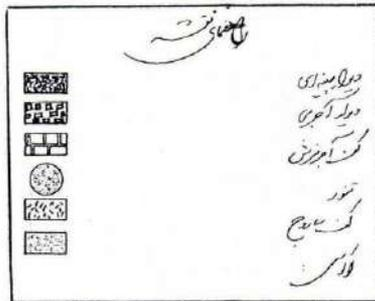 راهنمای نقشه
دیوار چینه‌ای
دیوار آجری
کف آجر فرش
تنور
کف ساروج